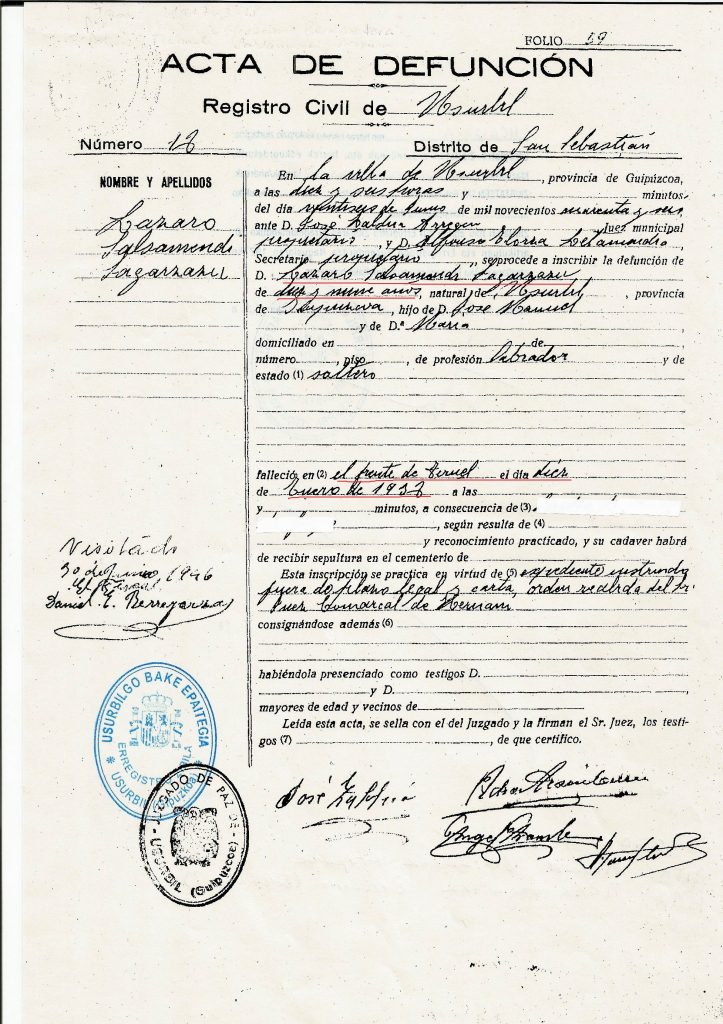 FOLIO 59
ACTA DE DEFUNCIÓN
Registro Civil de Usurbil
Número 18
Distrito de San Sebastián
NOMBRE Y APELLIDOS
Lazaro
Salsamendi
Lagarzazu
En la villa de Usurbil, provincia de Guipúzcoa,
a las diez y seis horas y minutos
del día veintiseis de Junio de mil novecientos cuarenta y seis
ante D. José Zaldua Juez municipal
propietario, y D. Alfonso Elorza
Secretario propietario, se procede a inscribir la defunción de
D. Lazaro Salsamendi Lagarzazu
de diez y nueve años, natural de Usurbil, provincia
de Guipúzcoa, hijo de D. José Manuel
y de D.ª María
domiciliado en de
número, piso, de profesión labrador y de
estado (1) soltero
falleció en (2) el frente de Teruel el día diez
de Enero de 1938 a las
y minutos, a consecuencia de (3)
, según resulta de (4)
y reconocimiento practicado, y su cadaver habrá
de recibir sepultura en el cementerio de
Esta inscripción se practica en virtud de (5) expediente instruido
fuera de plazo legal y carta orden recibida del Sr.
Juez Comarcal de Hernani
consignándose además (6)
habiéndola presenciado como testigos D.
y D.
mayores de edad y vecinos de
Leída esta acta, se sella con el del Juzgado y la firman el Sr. Juez, los testi-
gos (7), de que certifico.
Visitado
30 de Junio 1946
El Fiscal
Daniel E. Berregarza
José Zaldua
USURBILGO BAKE EPAITEGIA
ERREGISTRO ZIBILA
USURBIL (Gipuzkoa)
JUZGADO DE PAZ DE
USURBIL (Guipuzcoa)